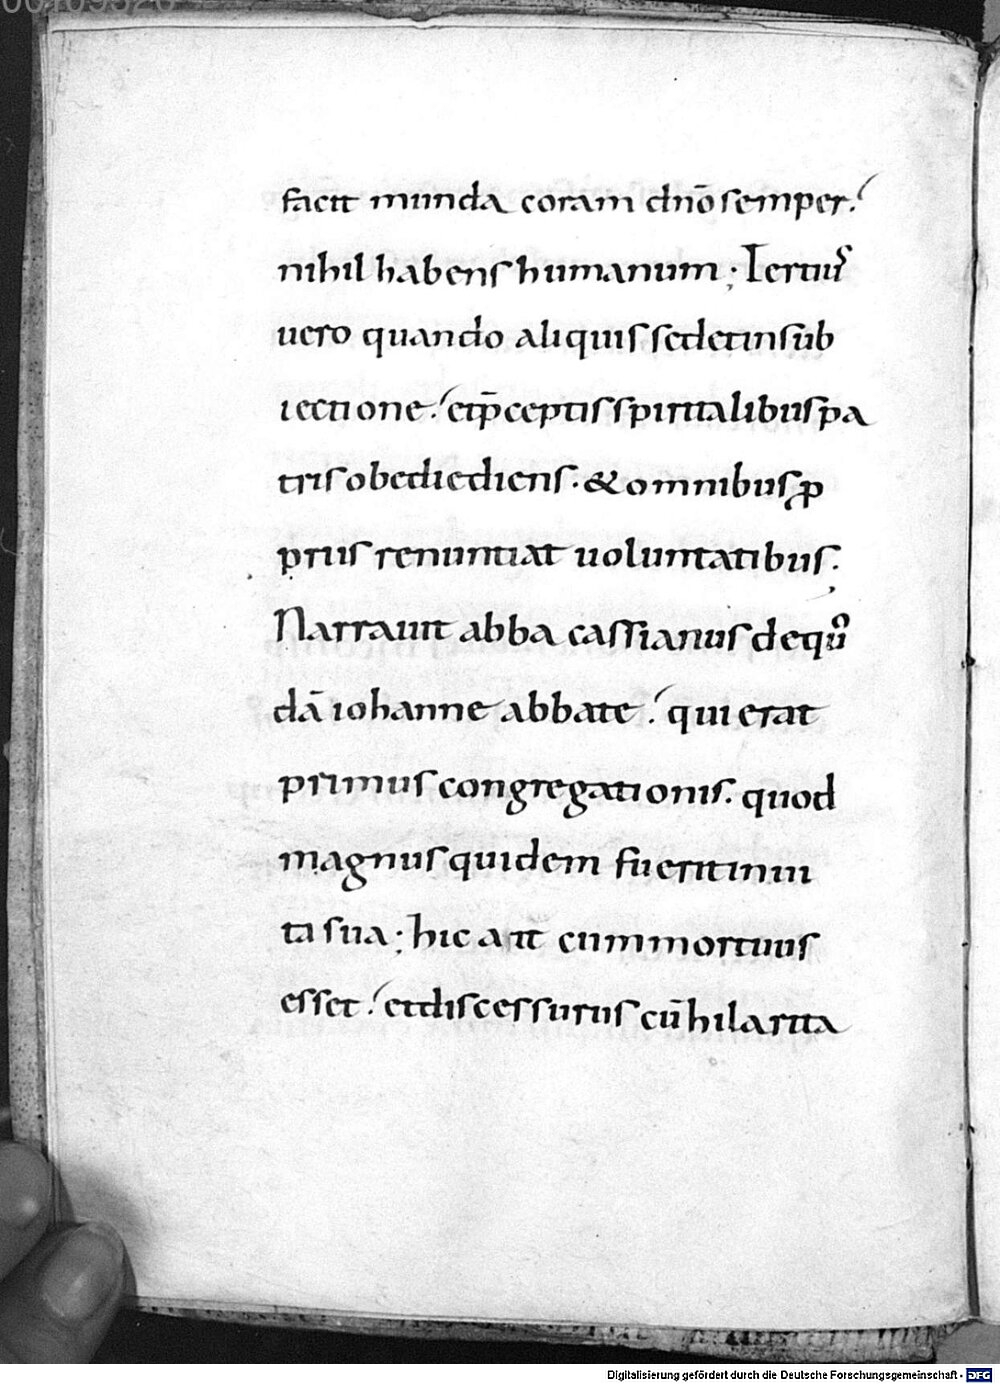 facit munda coram dn̄o semper.
nihil habens humanum; Tertius
uero quando aliquis sedet in sub
iectione. et p̄ceptis spiritalibus pa
tris obediediens. & omnibus ꝓ
prius renuntiat uoluntatibus.
Narrauit abba cassianus de quo
dā iohanne abbate. qui erat
primus congregationis. quod
magnus quidem fuerit in ui
ta sua; hic aut̄ cum mortuus
esset. et discessurus cū hilarita
Digitalisierung gefördert durch die Deutsche Forschungsgemeinschaft - DFG